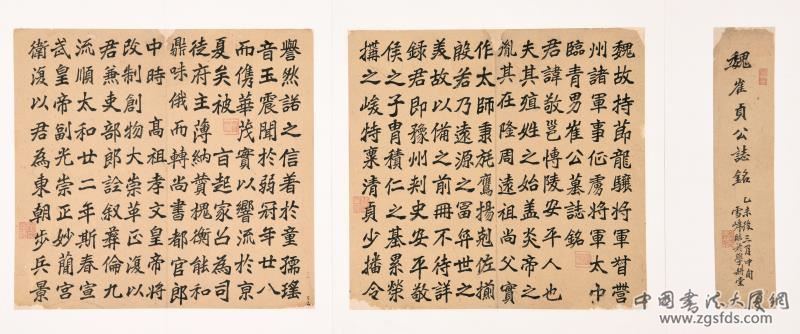 魏崔貞公誌銘
乙未後三月中旬
魏故持節龍驤將軍督營
州諸軍事征虜將軍太中
臨青男崔公墓誌銘
君諱敬邕博陵安平人也
夫其殖姓之始蓋炎帝之
胤其在隆周遠祖尚父實
作太師秉旄鷹揚剋佐揃
殷若乃遠源之富弈世之
美故以備之前冊不待詳
錄君即豫州刾史安平敬
侯之子冑積仁之基累榮
構之峻特稟清貞少播令
譽然諾之信著於童孺瑤
音玉震聞於弱冠年廿八
而儁華茂實以響流於京
夏矣被 旨起家召為司
徒府主薄納贊槐衡能和
鼎味俄而轉尚書都官郎
中時 高祖孝文皇帝將
改制創物大崇革正復以
君兼吏部郎詮叙彝倫九
流順太和廿二年斯春宣
武皇帝副光崇正妙蕳宮
衛復以君為東朝步兵景
中国书法大展网
www.zgsfds.com